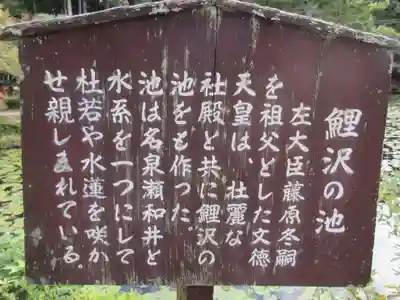 鯉沢の池
左大臣藤原冬嗣
を祖父とした文徳
天皇は、壮麗な
社殿と共に鯉沢の
池をも作った。
池は名泉瀬和井と
水系を一つにして
杜若や水蓮を咲か
せ親しまれている。